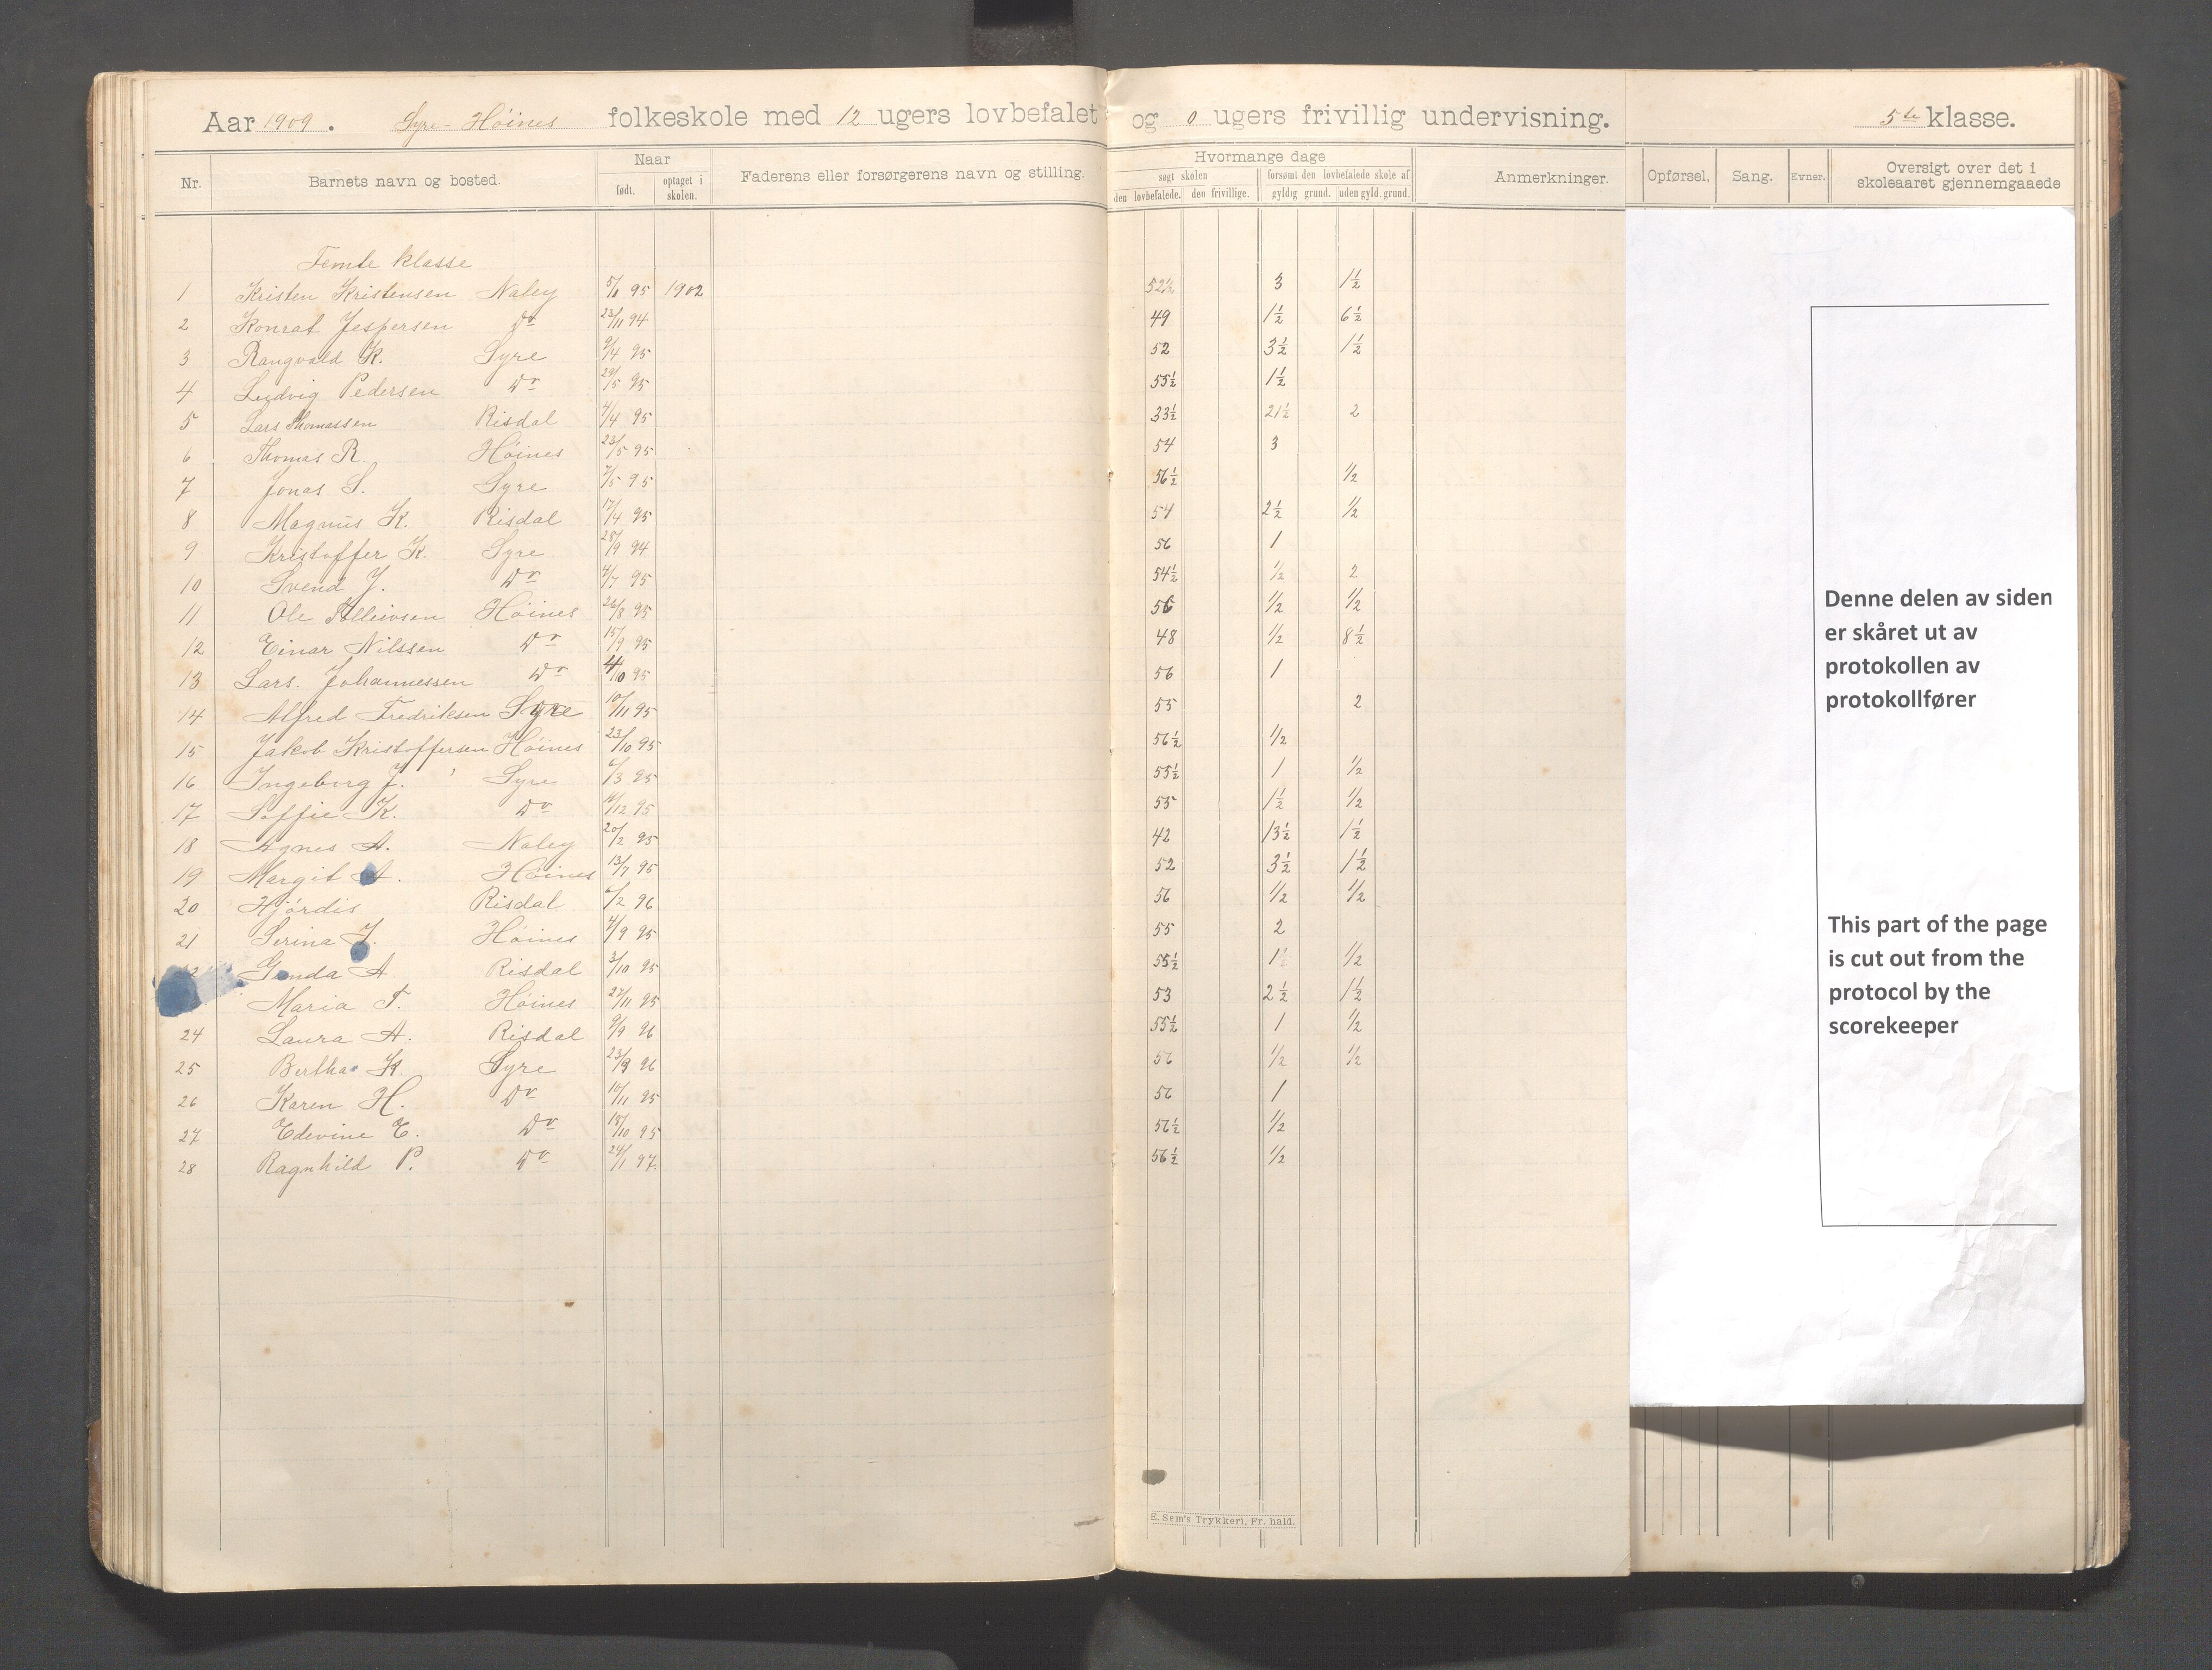 Aar 1909. Syre-Höines folkeskole med 12 ugers lovbefalet og 0 ugers frivillig undervisning. 5te klasse.
Nr. Barnets navn og bosted. Naar født. optaget i skolen. Faderens eller forsørgerens navn og stilling. Hvormange dage søgt skolen den lovbefalede. den frivillige. forsømt den lovbefalede skole af gyldig grund. uden gyld. grund. Anmerkninger. Opførsel. Sang. Evner. Oversigt over det i skoleaaret gjennemgaaede
Femte klasse
1 Kristen Kristensen Naley 95 1902 52½ 3 1½
2 Konrat Jespersen Do 23/11 94 49 1½ 6½
3 Rangvald K. Syre 9/4 95 52 3½ 1½
4 Ludvig Pedersen Do 29/5 95 55½ 1½
5 Lars Thomassen Risdal 4/4 95 33½ 21½ 2
6 Thomas R. Höines 23/5 95 54 3
7 Jonas S. Syre 7/5 95 56½ ½
8 Magnus K. Risdal 17/4 95 54 2½ ½
9 Kristoffer K. Syre 28/9 94 56 1
10 Svend J. Do 4/7 95 54½ ½ 2
11 Ole Höines 26/8 95 56 ½ ½
12 Einar Nilssen Do 15/9 95 48 ½ 8½
13 Lars. Johannessen Do 4/10 95 56 1
14 Alfred Fredriksen Syre 10/11 95 55 2
15 Jakob Kristoffersen Höines 23/10 95 56½ ½
16 Ingeborg J. Syre 6/3 95 55½ 1 ½
17 Soffie K. Do 95 55 1½ ½
18 Agnes A. Naley 20/2 95 42 13½ 1½
19 Margit A. Höines 13/7 95 52 3½ 1½
20 Hjördis Risdal 6/2 96 56 ½ ½
21 Serina J. Höines 4/9 95 55 2
Gonda A Risdal 3/10 95 55½ 1½ ½
Maria T. Höines 27/11 95 53 2½ 1½
24 Laura A. Risdal 9/9 96 55½ 1 ½
25 Bertha K Syre 23/9 96 56 ½ ½
26 Karen H. Do 10/11 95 56 1
27 Edevine E. Do 18/10 95 56½ ½
28 Ragnhild P. Do 24/1 97. 56½ ½
Denne delen av siden
er skåret ut av
protokollen av
protokollfører
This part of the page
is cut out from the
protocol by the
scorekeeper
E. Sem's Trykkeri, Fr. hald.